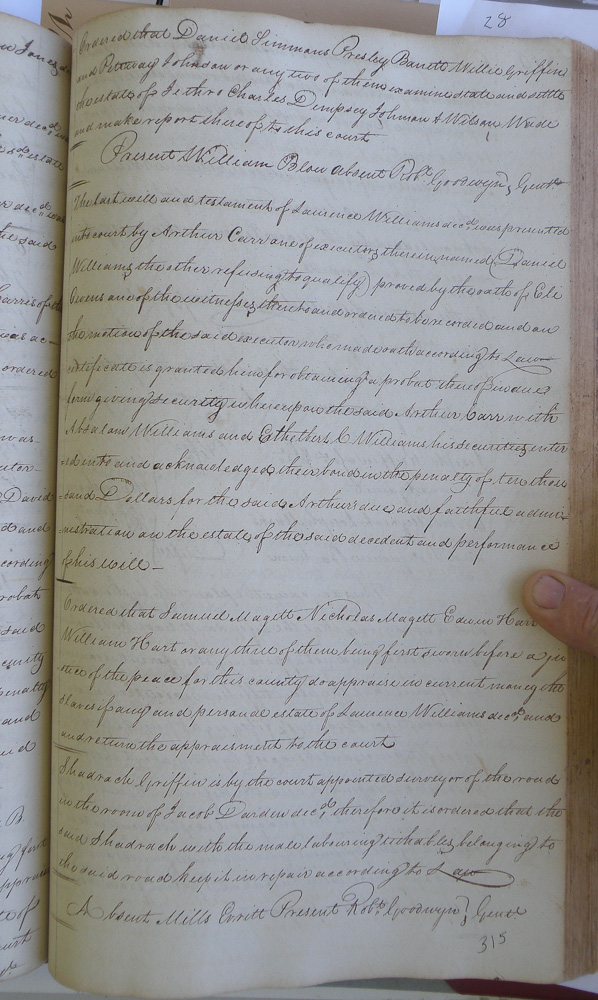 28
Ordered that Daniel Simmons Presley Barrett Willie Griffin
and Pettway Johnson or any two of them examine state and settle
the estate of Jethro Charles Dempsey Johnson & Wilson Wade
and make report thereof to this court
Present William Blow absent Robt. Goodwyn, Gent.
The last will and testament of Laurence Williams decd. was presented
into court by Arthur Carr one of executors therein named (Daniel
Williams the other refusing to qualify) proved by the oath of Eli
Owens one of the witnesses thereto and ordered to be recorded and on
the motion of the said executor who made oath according to Law
certificate is granted him for obtaining a probat thereof in due
form giving security whereupon the said Arthur Carr with
Absalom Williams and Williams his securities enter
=ed into and acknowledged their bond in the penalty of ten thou
=sand Dollars for the said Arthur's due and faithful admi-
nistration on the estate of the said decedent and performance
of his will -
Ordered that Samuel Magett Nicholas Magett Edwin Hart
William Hart or any three of them being first sworn before a jus
tice of the peace for this county do appraise in current money the
slaves if any and personal estate of Laurence Williams decd. and
and return the appraisment to the court
Shadrach Griffin is by the court appointed surveyor of the road
in the room of Jacob Darden decd. therefore it is ordered that the
said Shadrach with the male labouring tithables belonging to
the said road keep it in repair according to Law
Absent Mills Erritt Present Robt. Goodwyn, Gent.
315